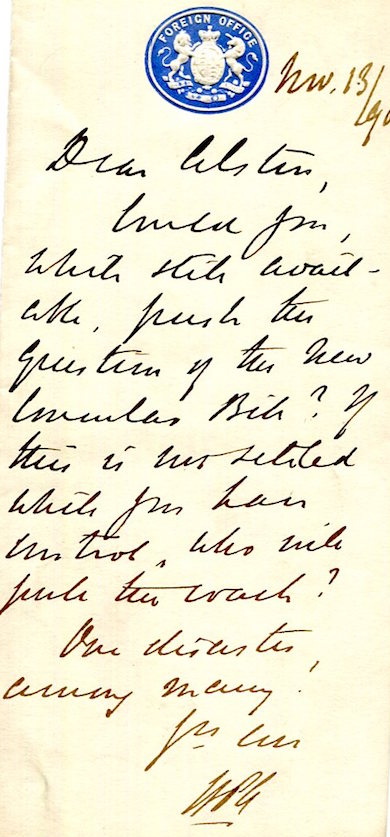 FOREIGN OFFICE
Nov. 13/
Dear Alston,
Could you,
while still avail-
able, push the
question of the New
Consular Bill? If
this is not settled
while you have
control, who will
push the coach?
One disaster,
among many!
Yrs